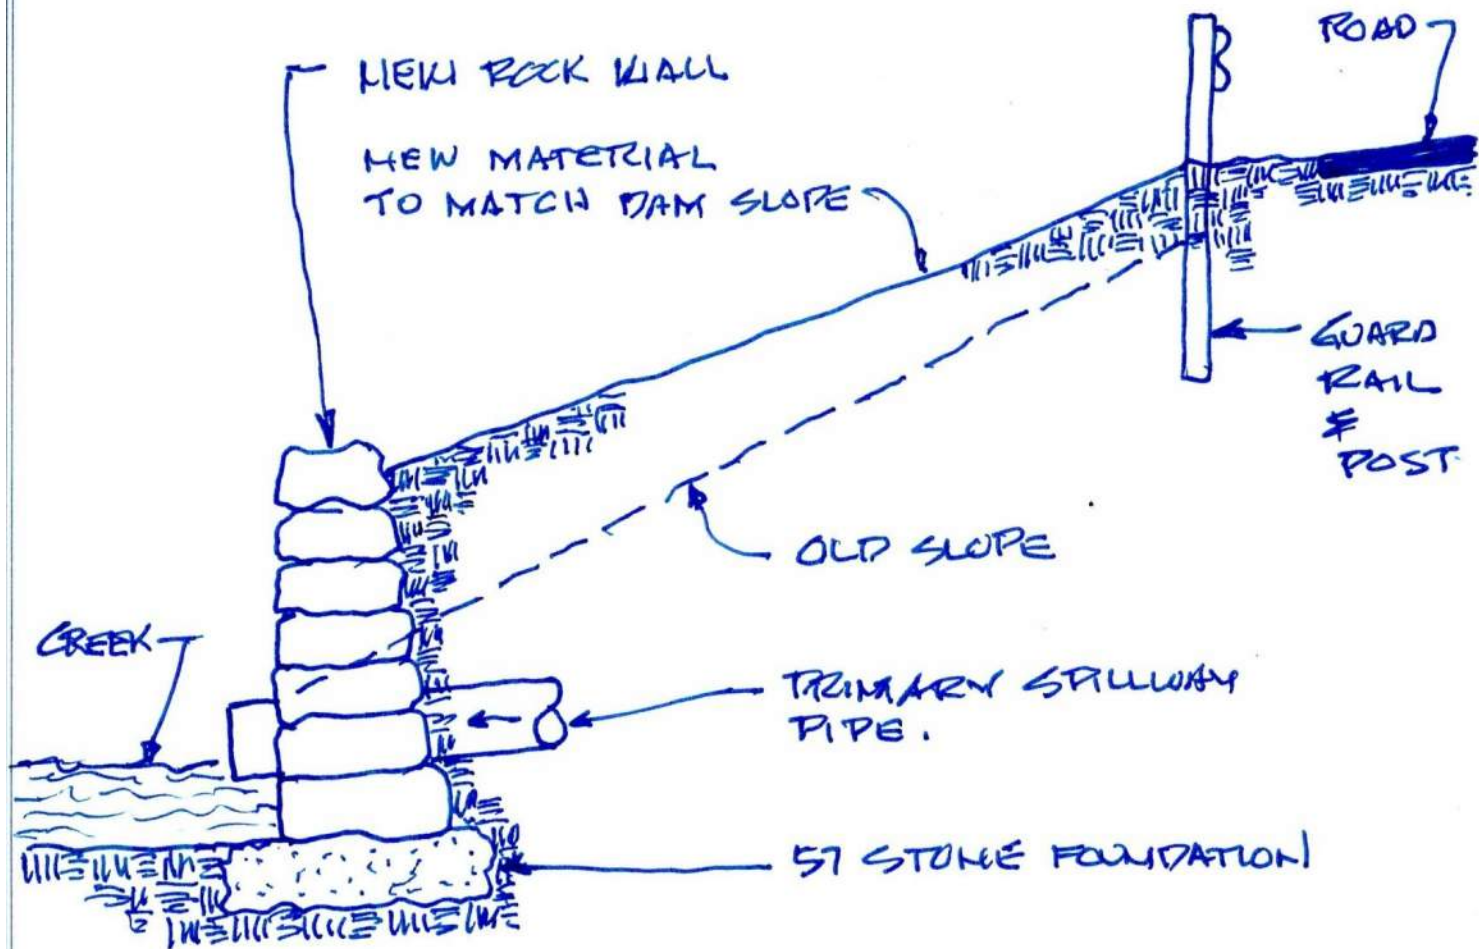 NEW ROCK WALL
NEW MATERIAL
TO MATCH DAM SLOPE
ROAD
GUARD
RAIL
&
POST.
OLD SLOPE
CREEK
PRIMARY SPILLWAY
PIPE.
57 STONE FOUNDATION